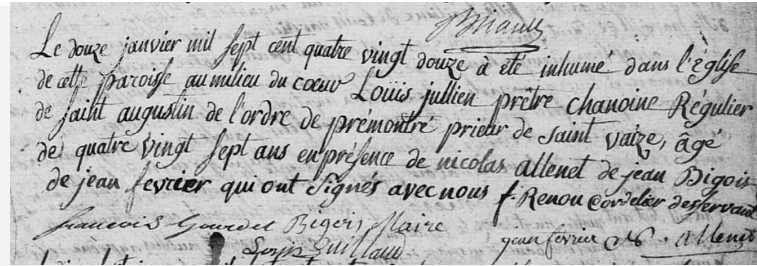 Briault
Le douze janvier mil sept cent quatre vingt douze à été inhumé dans l'église
de cette paroisse au milieu du coeur Loüis jullien prêtre chanoine Régulier
de saint augustin de l'ordre de prémontré prieur de saint vaize, âgé
de quatre vingt sept ans en présence de nicolas allenet de jean Bigois
de jean fevrier qui ont signés avec nous f. Renou cordelier desservant
francois Gourdel Bigois Maire jean fevrier N. allenet
Louis Guillaud